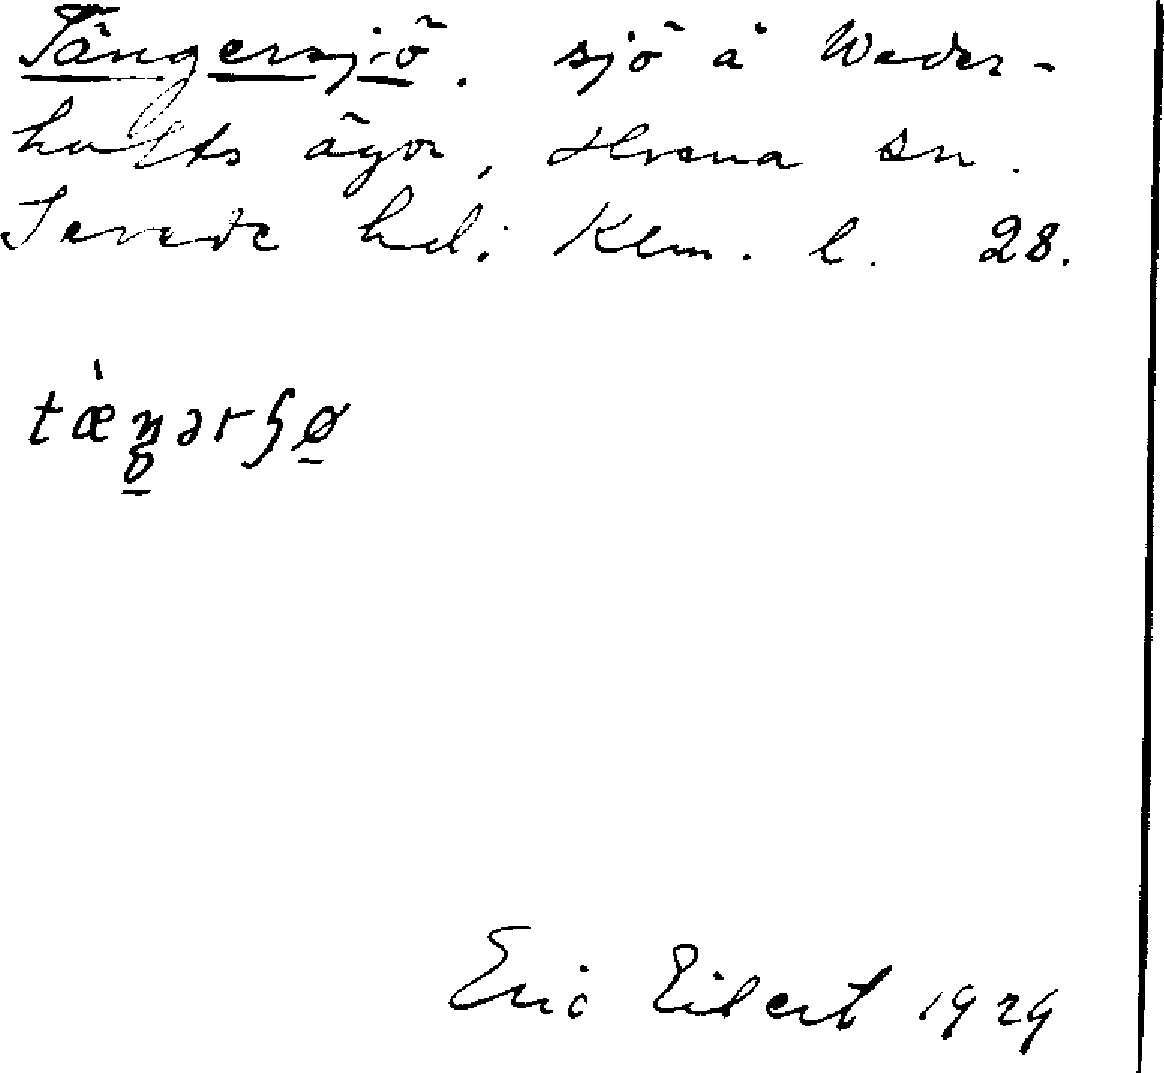 Tängersjö. sjö å Weder-
holts ägor, Hvena sn.
Sevede hd. Klm. l. 28.
tæ̀ŋərʃø
Eric Eilert 1929